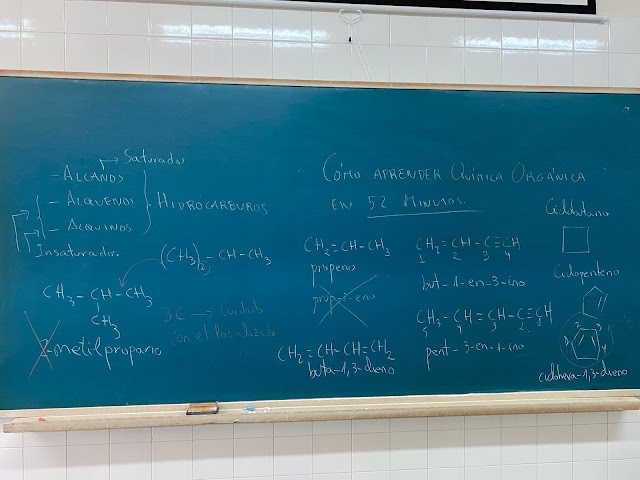 Saturados
- ALCANOS
- ALQUENOS
- ALQUINOS
HIDROCARBUROS
Insaturados
(CH3)2 - CH - CH3
CH3 - CH - CH3
CH3
2-metilpropano
3C → cuidado
con el localizador
CÓMO APRENDER QUÍMICA ORGÁNICA
EN 52 MINUTOS.
CH2=CH-CH3
propeno
prop-1-eno
CH2=CH-CH=CH2
buta-1,3-dieno
CH2=CH-C≡CH
1 2 3 4
but-1-en-3-ino
CH3-CH=CH-C≡CH
5 4 3 2 1
pent-3-en-1-ino
Ciclobutano
Ciclopenteno
ciclohexa-1,3-dieno